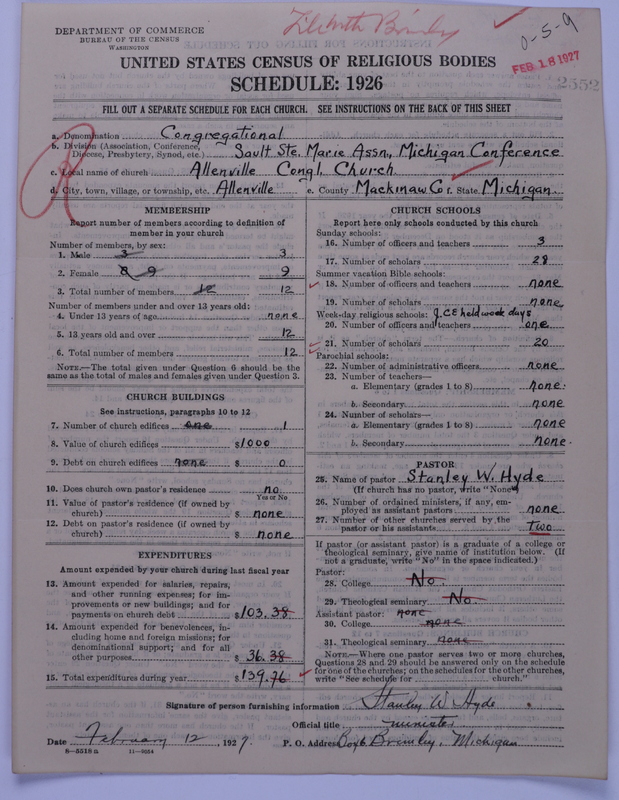 DEPARTMENT OF COMMERCE
BUREAU OF THE CENSUS
WASHINGTON
0-5-9
FEB 18 1927
2352
UNITED STATES CENSUS OF RELIGIOUS BODIES
SCHEDULE: 1926
FILL OUT A SEPARATE SCHEDULE FOR EACH CHURCH. SEE INSTRUCTIONS ON THE BACK OF THIS SHEET
a. Denomination Congregational
b. Division (Association, Conference, Diocese, Presbytery, Synod, etc.) Sault Ste. Marie Assn., Michigan Conference
c. Local name of church Allenville Congl. Church
d. City, town, village, or township, etc. Allenville e. County Mackinaw Co f. State Michigan
MEMBERSHIP
Report number of members according to definition of
member in your church
Number of members, by sex:
1. Male 3 3
2. Female 8 9 9
3. Total number of members 12 12
Number of members under and over 13 years old:
4. Under 13 years of age none
5. 13 years old and over 12
6. Total number of members 12
NOTE.—The total given under Question 6 should be the
same as the total of males and females given under Question 3.
CHURCH BUILDINGS
See instructions, paragraphs 10 to 12
7. Number of church edifices one 1
8. Value of church edifices $1000
9. Debt on church edifices none $ 0
10. Does church own pastor's residence no
Yes or No
11. Value of pastor's residence (if owned by
church) $ none
12. Debt on pastor's residence (if owned by
church) $ none
EXPENDITURES
Amount expended by church during last fiscal year
13. Amount expended for salaries, repairs,
and other running expenses; for im-
provements or new buildings; and for
payments on church debt $103.38
14. Amount expended for benevolences, in-
cluding home and foreign missions; for
denominational support; and for all
other purposes $ 36.38
15. Total expenditures during year $139.76
CHURCH SCHOOLS
Report here only schools conducted by this church
Sunday schools:
16. Number of officers and teachers 3
17. Number of scholars 28
Summer vacation Bible schools:
18. Number of officers and teachers none
19. Number of scholars none
Week-day religious schools: J.C.E held week days
20. Number of officers and teachers one
21. Number of scholars 20
Parochial schools:
22. Number of administrative officers none
23. Number of teachers—
a. Elementary (grades 1 to 8) none
b. Secondary none
24. Number of scholars—
a. Elementary (grades 1 to 8) none
b. Secondary none
PASTOR
25. Name of pastor Stanley W. Hyde
(If church has no pastor, write "None")
26. Number of ordained ministers, if any, em-
ployed as assistant pastors none
27. Number of other churches served by the
pastor or his assistants Two
If pastor (or assistant pastor) is a graduate of a college or
theological seminary, give name of institution below. (If
not a graduate, write "No" in the space indicated.)
Pastor:
28. College No.
29. Theological seminary No.
Assistant pastor: none
30. College none
31. Theological seminary none
NOTE.—Where one pastor serves two or more churches,
Questions 28 and 29 should be answered only on the schedule
for one of the churches; on the schedules for the other churches,
write "See schedule for church."
Signature of person furnishing information Stanley W. Hyde
Official title minister
Date February 12, 1927. P. O. Address Box 6 Brimley, Michigan
8—5518 a 11—9364